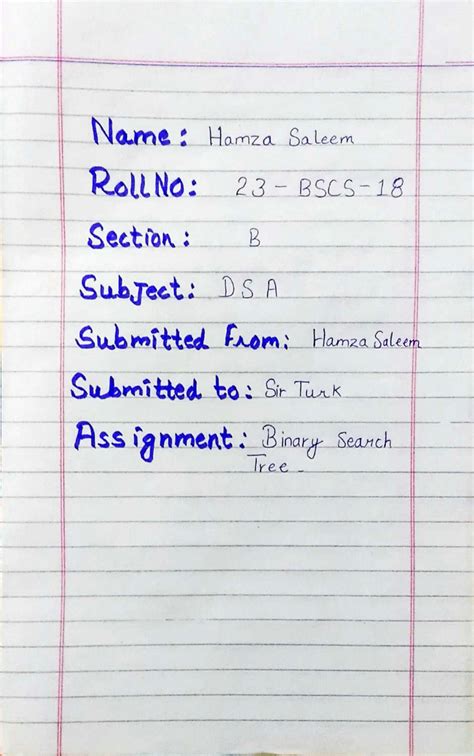 Name: Hamza Saleem
Roll No: 23-BSCS-18
Section: B
Subject: DSA
Submitted From: Hamza Saleem
Submitted to: Sir Turk
Assignment: Binary Search
Tree